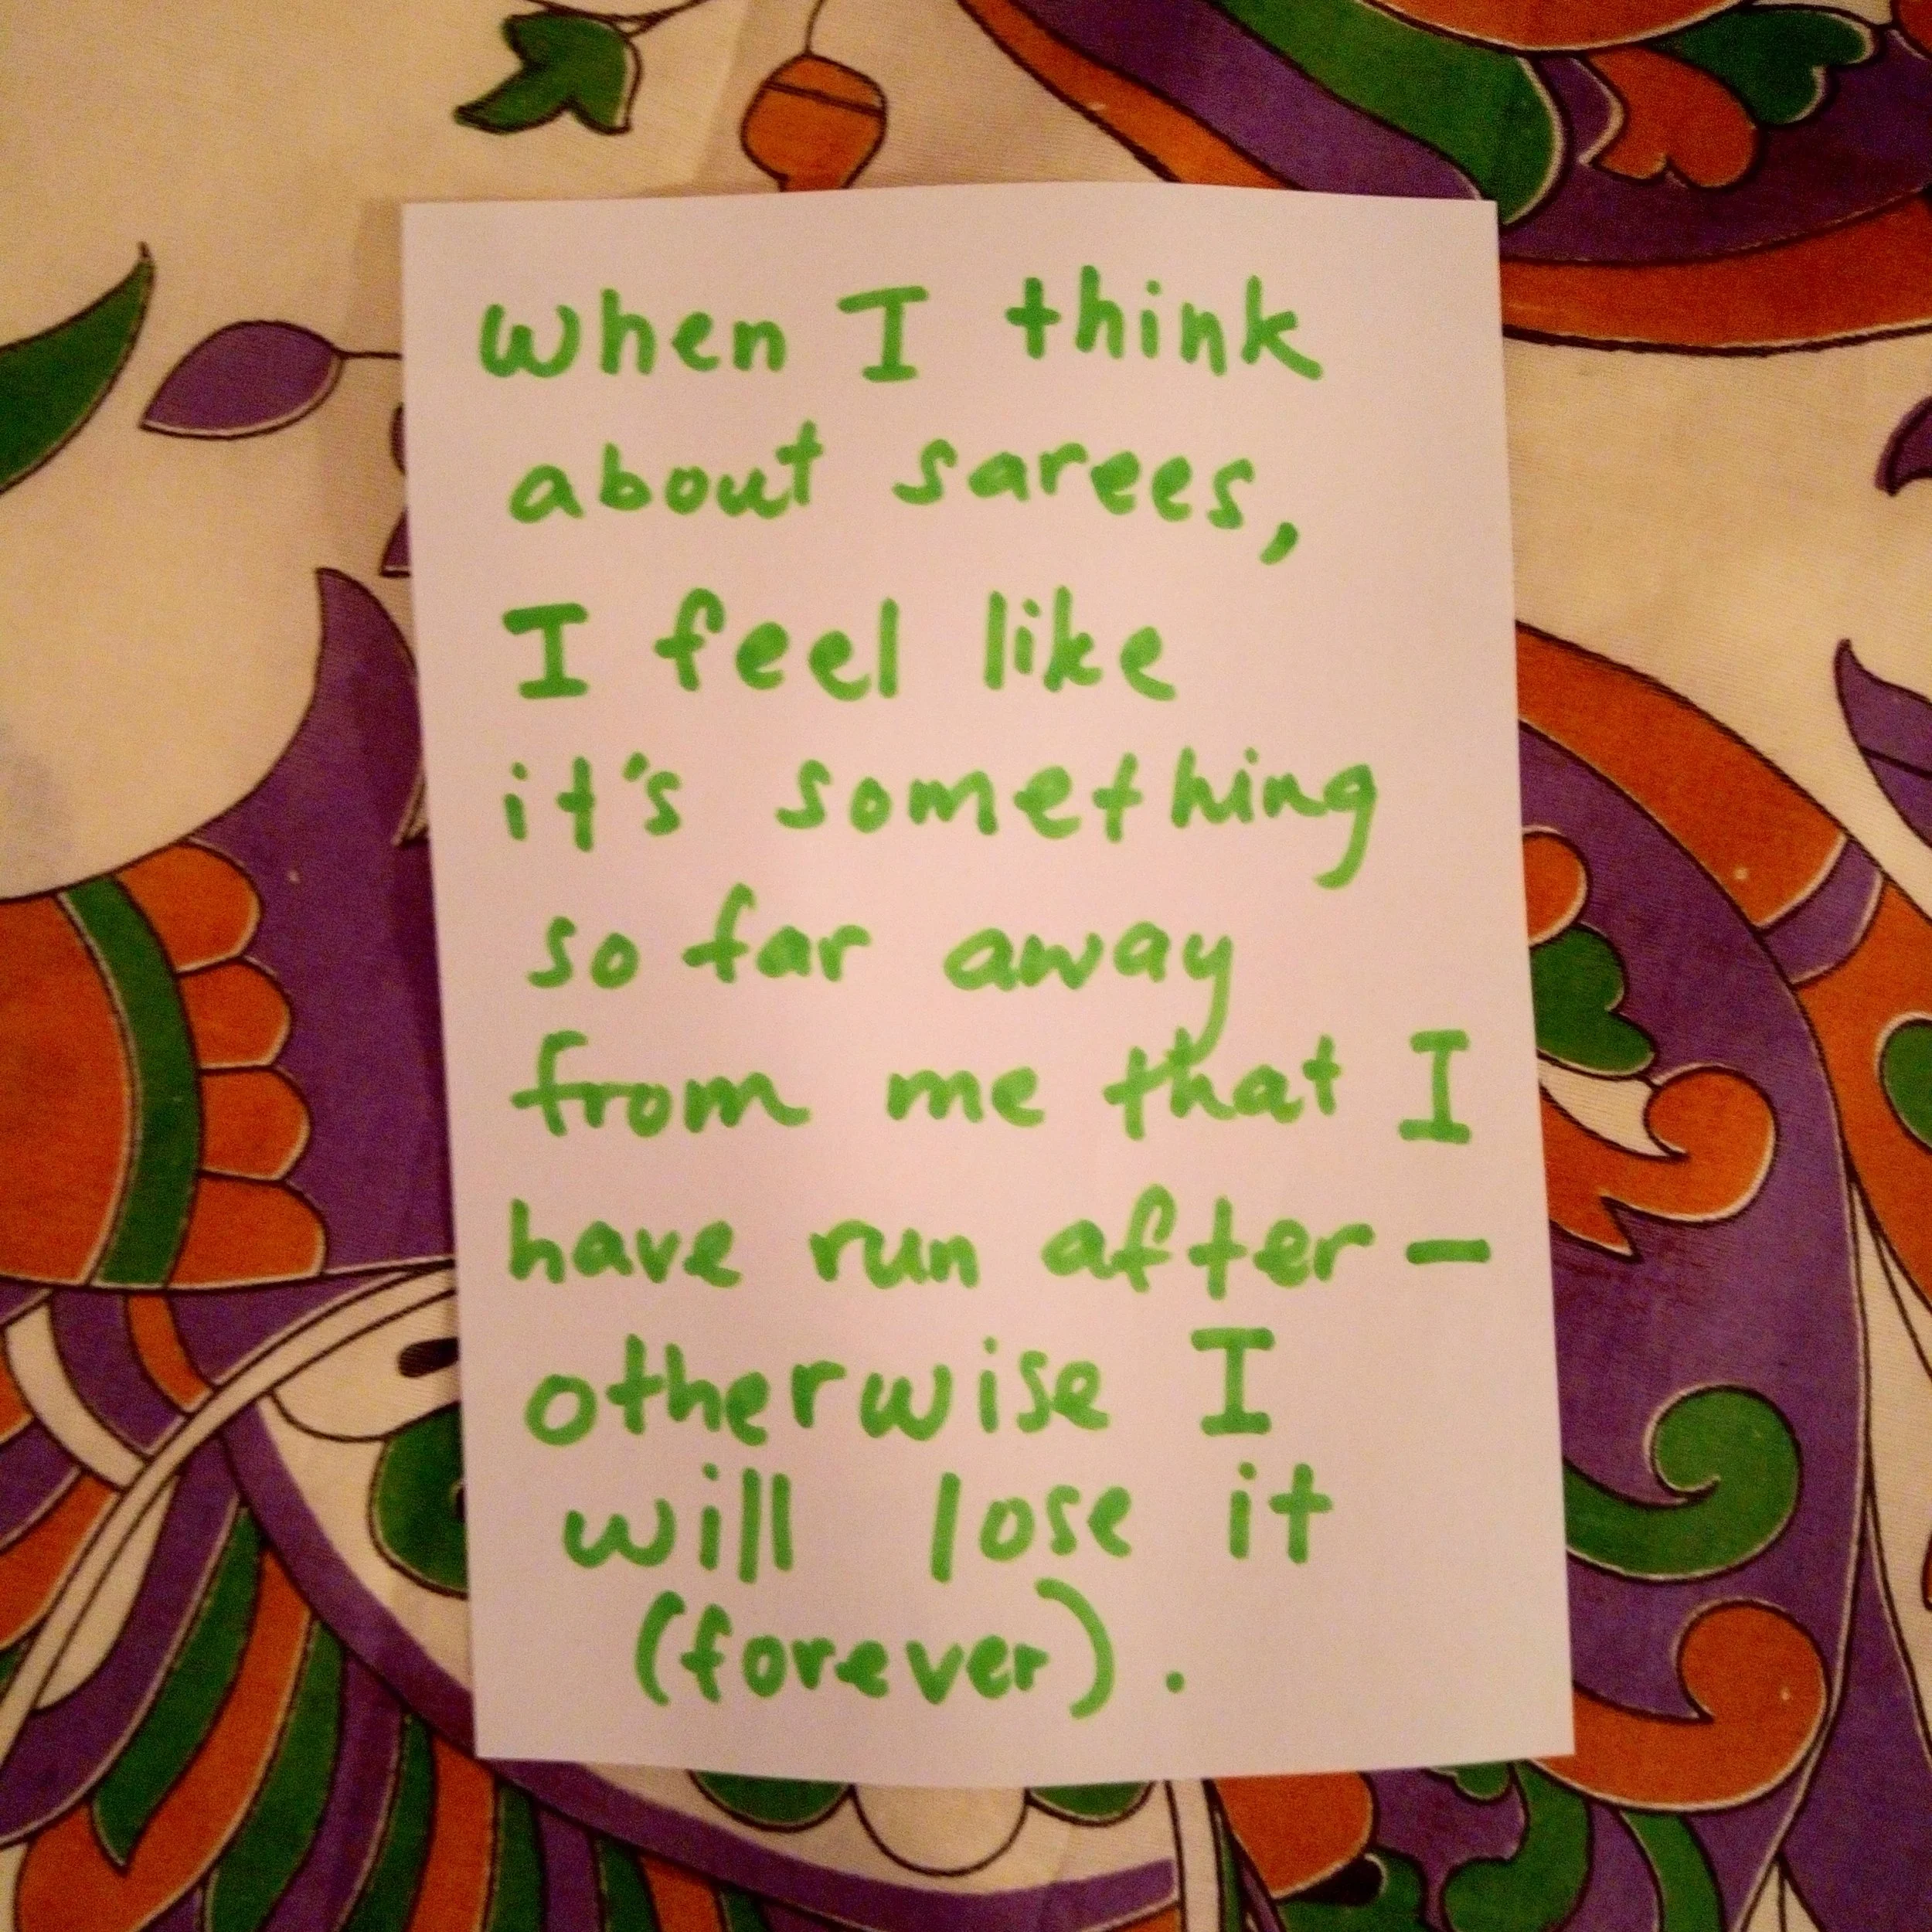 When I think
about sarees,
I feel like
it's something
so far away
from me that I
have run after –
otherwise I
will lose it
(forever).